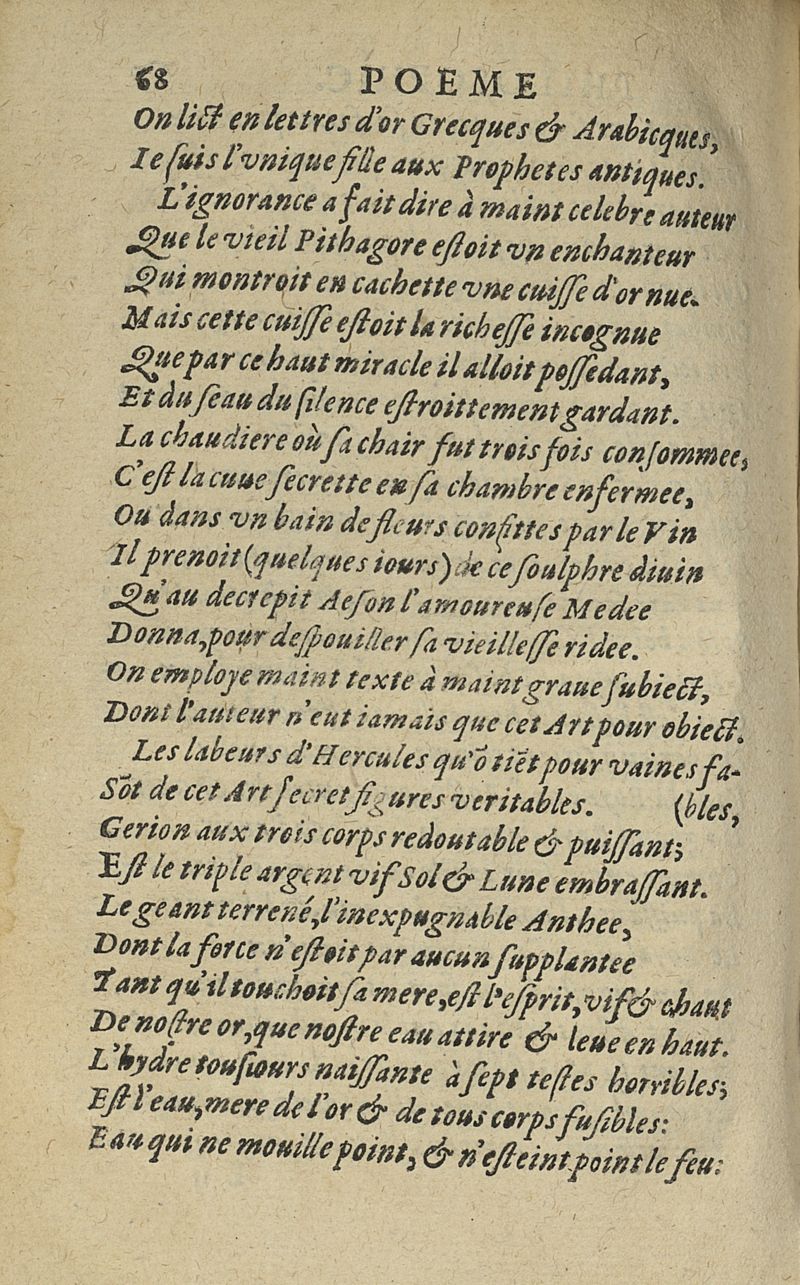 68 POEME
On lict en lettres d'or Grecques & Arabicques,
Ie ſuis l'vnique fille aux Prophetes antiques.
L'ignorance a fait dire à maint celebre auteur
Que le vieil Pithagore eſtoit vn enchanteur
Qui montroit en cachette vne cuiſſe d'or nue.
Mais cette cuiſſe eſtoit la richeſſe incognue
Que par ce haut miracle il alloit poſſedant,
Et dù ſeau du ſilence eſtroittement gardant.
La chaudiere où ſa chair fut trois fois conſommee,
C'eſt la cuue ſecrette en ſa chambre enfermee,
Ou dans vn bain de fleurs confittes par le Vin
Il prenoit (quelques iours) de ce ſoulphre diuin
Qu'au decrepit Aeſon l'amoureuſe Medee
Donna, pour deſpouiller ſa vieilleſſe ridee.
On employe maint texte à maint graue ſubiect,
Dont l'auteur n'eut iamais que cet Art pour obiect.
Les labeurs d'Hercules qu'õ tiẽt pour vaines fa-
Sõt de cet Art ſecret figures veritables. (bles,
Gerion aux trois corps redoutable & puiſſant;
Eſt le triple argent vif Sol & Lune embraſſant.
Le geant terrené, l'inexpugnable Anthee,
Dont la force n'eſtoit par aucun ſupplantee
Tant qu'il touchoit ſa mere, eſt l'eſprit, vif & chaut
De noſtre or, que noſtre eau attire & leue en haut.
L'hydre touſiours naiſſante à ſept teſtes horribles;
Eſt l'eau, mere de l'or & de tous corps fuſibles:
Eau qui ne mouille point, & n'eſteint point le feu: